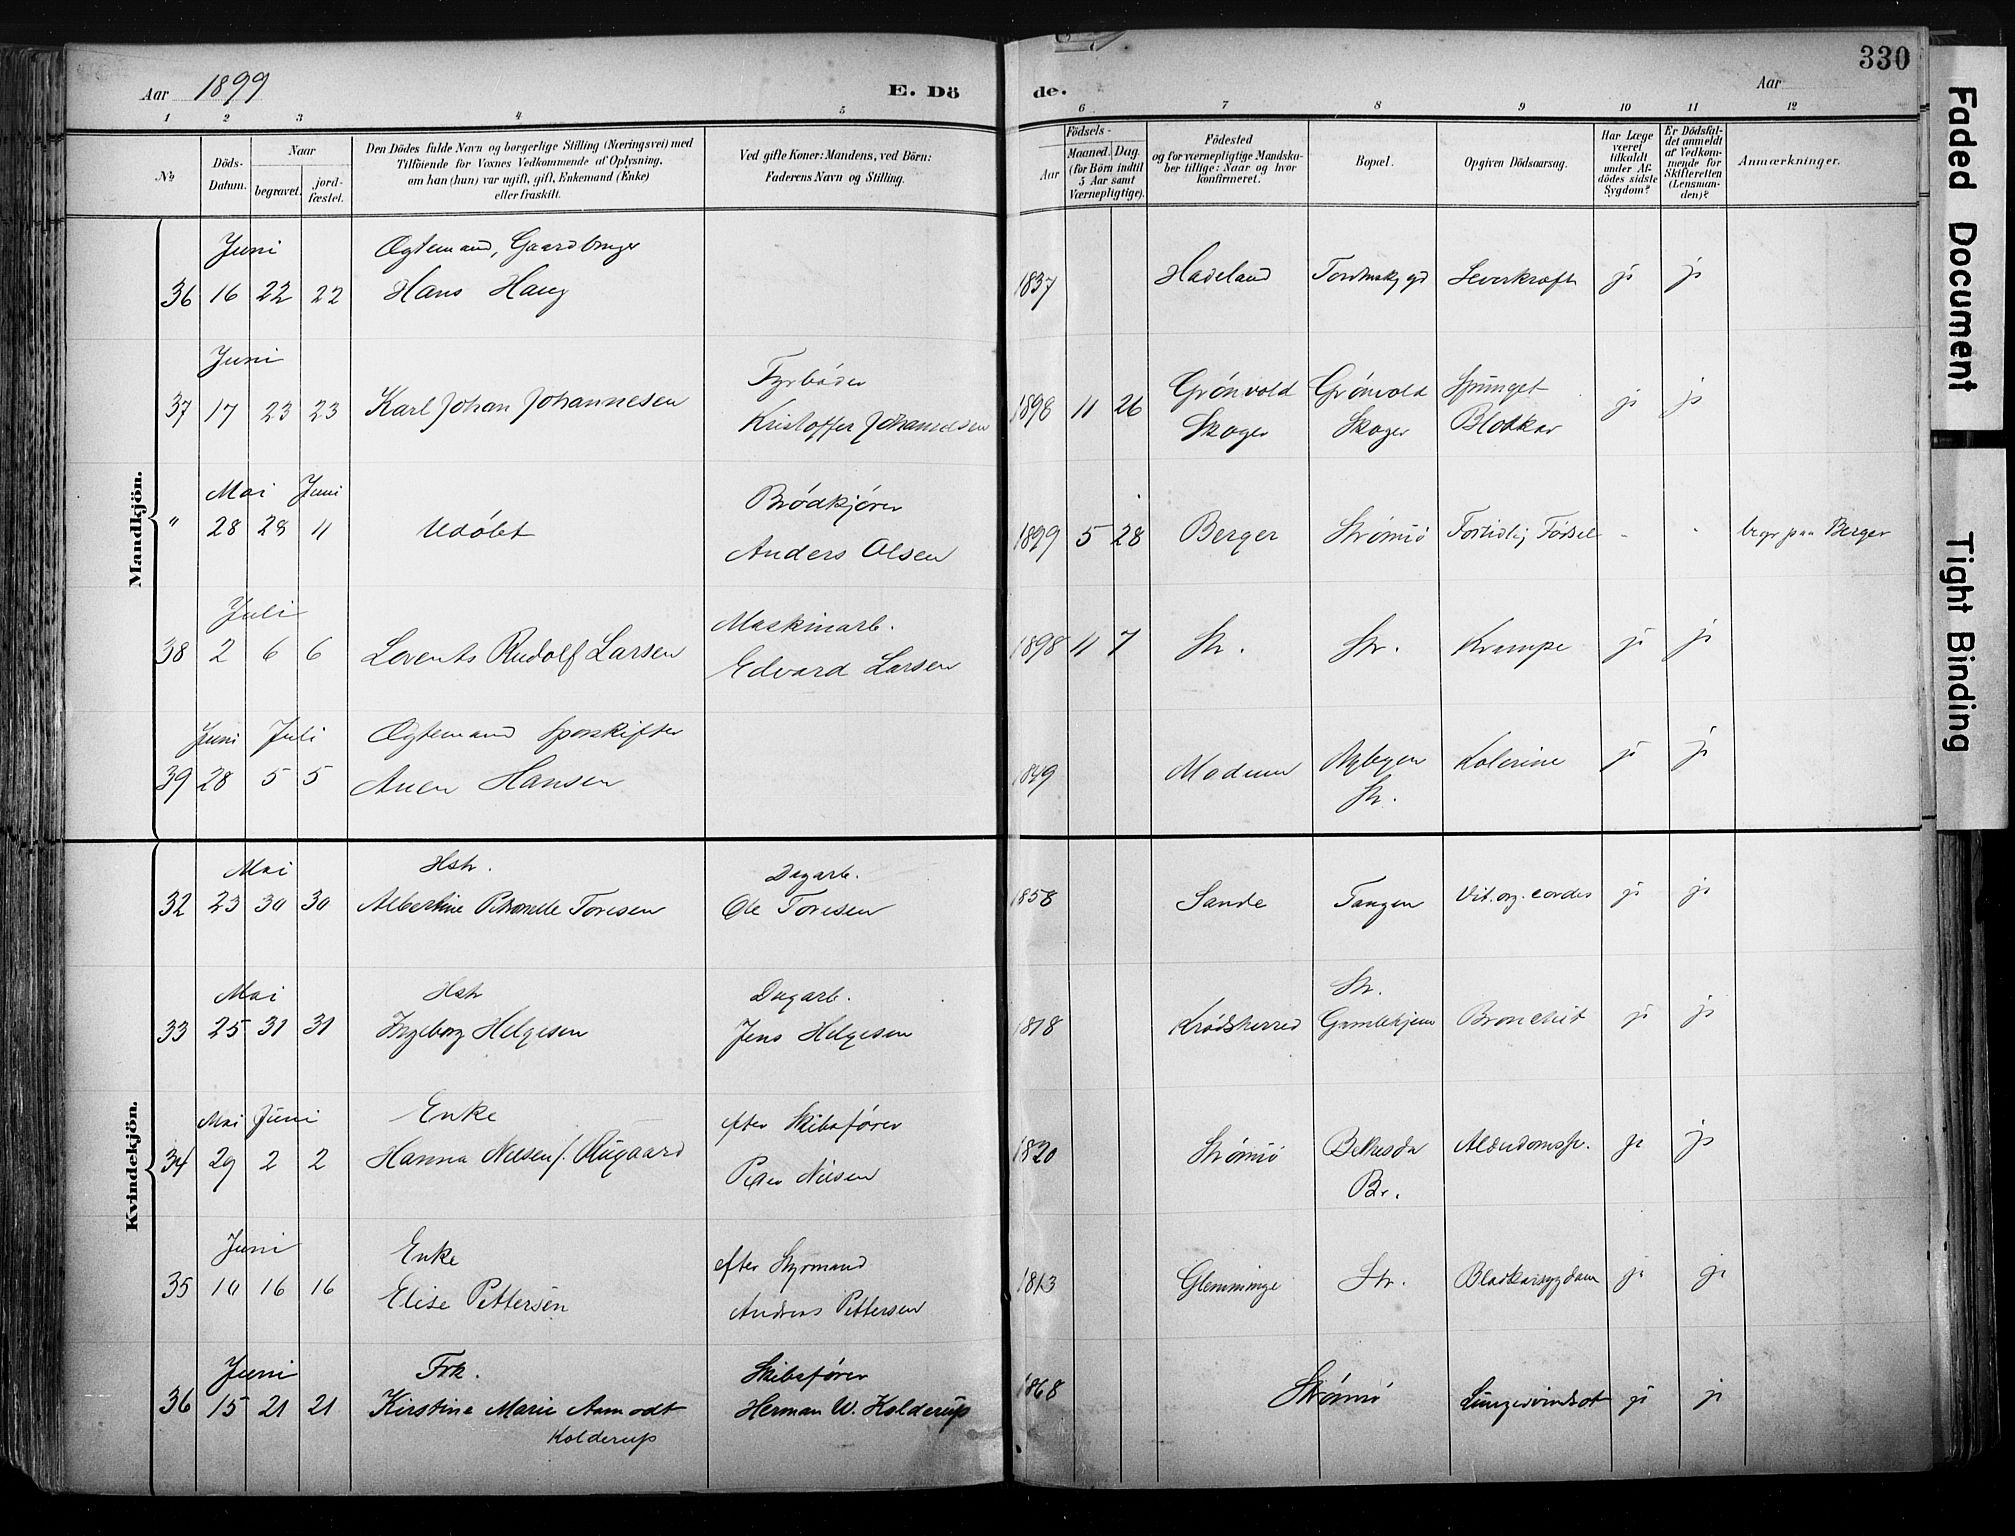 Aar 1899
E. Dö
de.
Aar
330
1 2 3 4 5 6 7 8 9 10 11 12
No
Döds-Datum.
Naar
begravet.
jord-fæstet.
Den Dödes fulde Navn og borgerlige Stilling (Næringsvei) med
Tilföiende for Voxnes Vedkommende af Oplysning,
om han (hun) var ugift, gift, Enkemand (Enke)
eller fraskilt.
Ved gifte Koner: Mandens, ved Börn:
Faderens Navn og Stilling.
Födsels-
Aar
Maaned. Dag.
(for Börn indtil
5 Aar samt
Værnepligtige).
Födested
og for værnepligtige Mandska-
ber tillige: Naar og hvor
konfirmeret.
Bopæl.
Opgiven Dödsaarsag.
Har Læge
været
tilkaldt
under Af-
dödes sidste
Sygdom?
Er Dödsfal-
det anmeldt
af Vedkom-
mende for
Skifteretten
(Lensman-
den)?
Anmærkninger.
Mandkjön.
Juni
Ægtemand, Gaardbruger
36 16 22 22 Hans Haug 1837 Hadeland Leverkræft ja ja
Juni
Fyrböder
37 17 23 23 Karl Johan Johannesen Kristoffer Johannesen 1898 11 26 Grönvold Skoger Grönvold Skoger Sprunget Blodkar ja ja
Mai Juni
Brödkjörer
" 28 28 11 Udöbt Anders Olsen 1899 5 28 Berger Strömsö Fortidlig Födsel - - begr. paa Berger
Juli
Maskinarb.
38 2 6 6 Lorents Rudolf Larsen Edvard Larsen 1898 11 7 Str. Str. Krampe ja ja
Juni Juli
Ægtemand Sporskifter
39 28 5 5 Hansen 1849 Modum Nybyen Str. Kolerine ja ja
Kvindekjön.
Mai
Hstr.
Dagarb.
32 23 30 30 Albertine Petronelle Toresen Ole Toresen 1858 Sande Tangen Vit. org. cordis ja ja
Mai
Hstr
Dagarb.
Str.
33 25 31 31 Ingeborg Helgesen Jens Helgesen 1818 Krødsherred Gamlehjem Bronchit ja ja
Mai Juni
Enke
efter Skibsförer
34 29 2 2 Hanna Nielsen f. Rugaard Peder Nielsen 1820 Strömsö Bethesda Br. Alderdomssv. ja ja
Juni
Enke
efter Styrmand
35 10 16 16 Elise Pettersen Andreas Pettersen 1813 Glemminge Str. Bladkarsygdam ja ja
Juni
Frk.
Skibsförer
36 15 21 21 Kirstine Marie Aamodt Kolderup Herman W. Kolderup 1868 Strömsö Lungesvindsot ja ja
Faded Document
Tight Binding